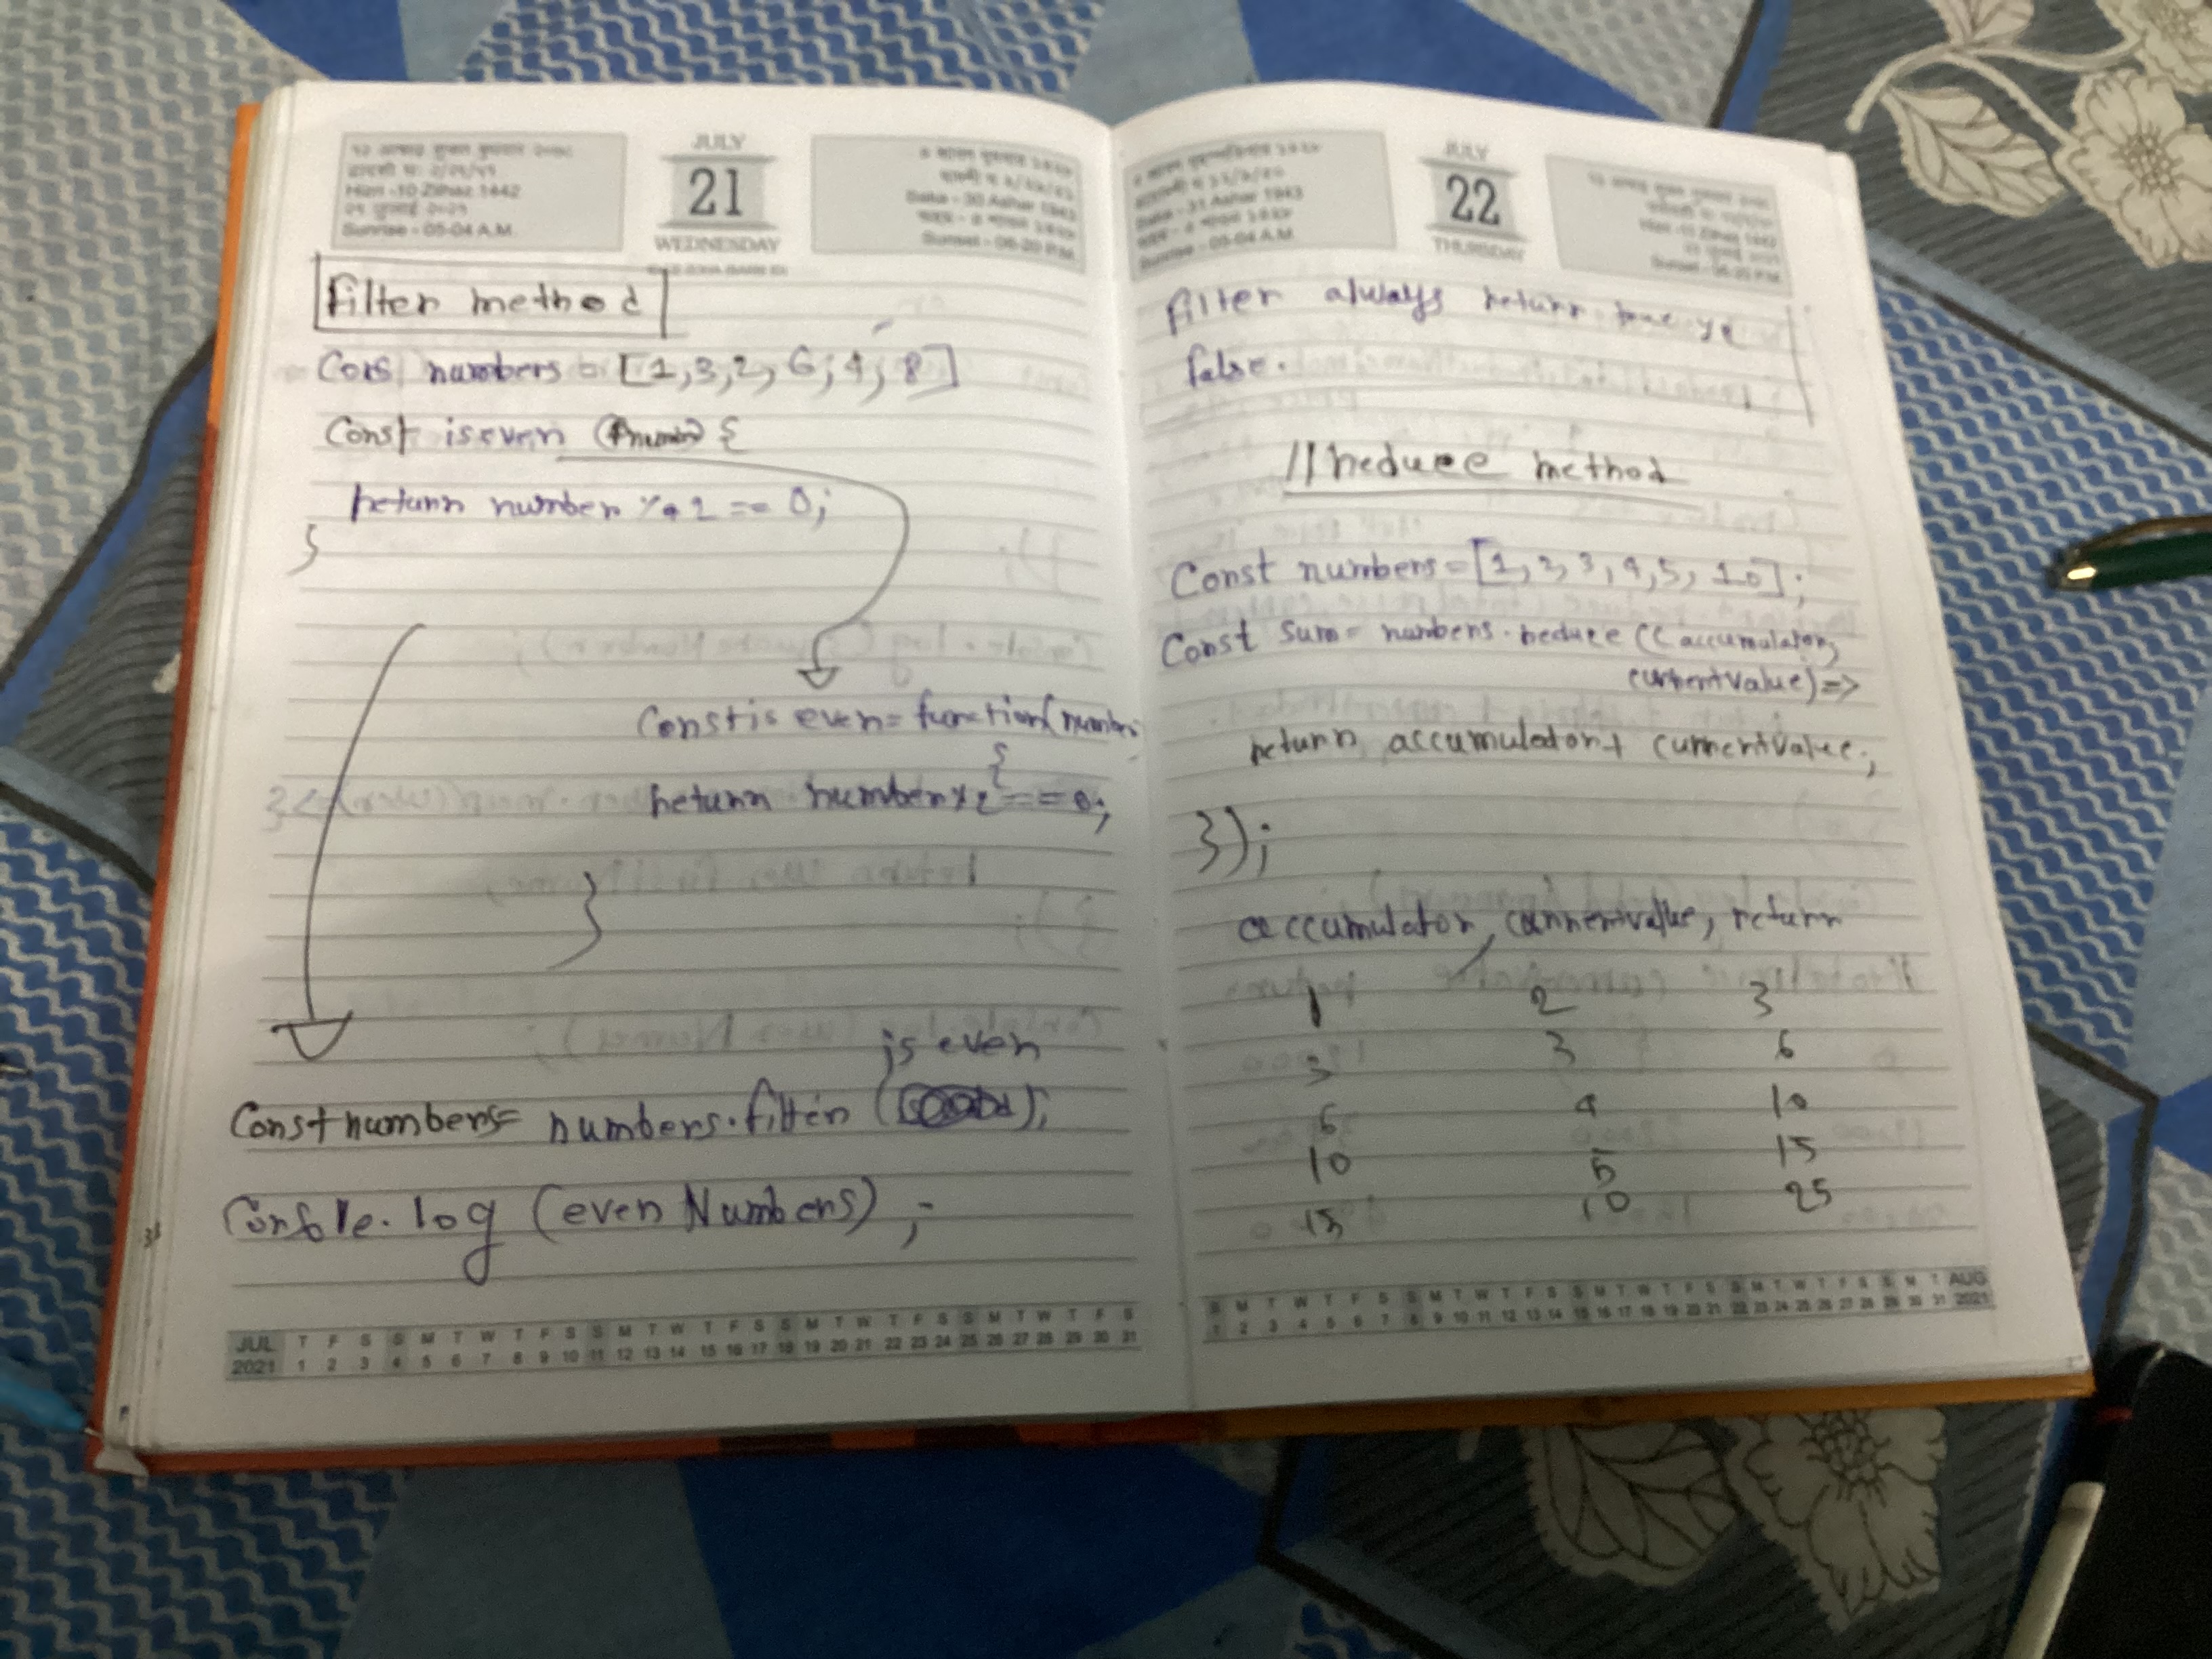 JULY
21
WEDNESDAY
Hijri - 10 Zilhaz 1442
Sunrise - 05-04 A.M.
Saka - 30 Ashar 1943
Sunset - 06-20 P.M.
Filter method
Cons numbers = [1,3,2,6,4,8]
Const iseven {
return number % 2 == 0;
}
Const is even = function(number
{
return number % 2 == 0;
}
is even
Const numbers = numbers.filter ( );
Console.log (even Numbers) ;
JUL T F S S M T W T F S S M T W T F S S M T W T F S S M T W T F S
2021 1 2 3 4 5 6 7 8 9 10 11 12 13 14 15 16 17 18 19 20 21 22 23 24 25 26 27 28 29 30 31
JULY
22
THURSDAY
Saka - 31 Ashar 1943
Sunrise - 05-04 A.M.
Sunset - 06-20 P.M.
filter always return true ya
false.
// reduce method
Const numbers = [1,2,3,4,5,10];
Const sum = numbers.reduce ((accumulator,
currentvalue) =>
return accumulator + currentvalue;
});
accumulator, currentvalue, return
1 2 3
3 3 6
6 4 10
10 5 15
15 10 25
S M T W T F S S M T W T F S S M T W T F S S M T W T F S S M T AUG
1 2 3 4 5 6 7 8 9 10 11 12 13 14 15 16 17 18 19 20 21 22 23 24 25 26 27 28 29 30 31 2021